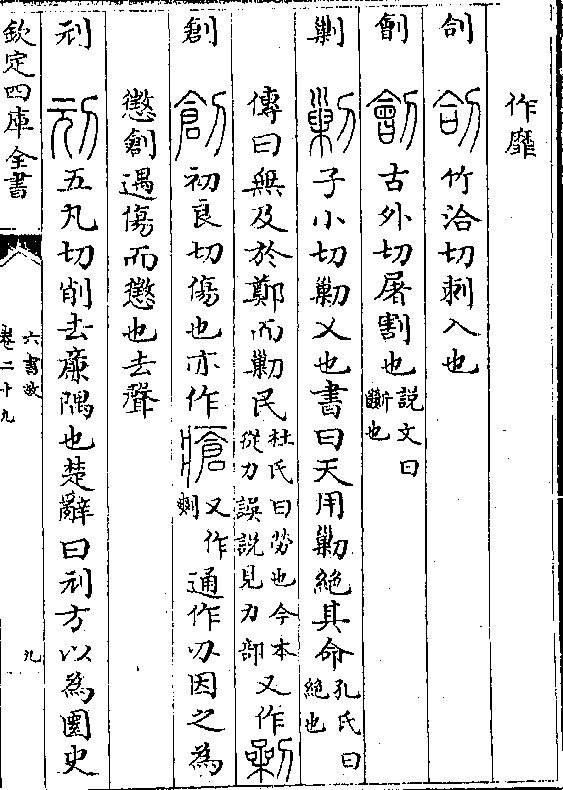 作靡
㓣 竹洽切刺入也
劊 古外切屠割也說文曰斷也
剿 子小切勦乂也書曰天用勦絶其命孔氏曰絶也
傳曰無及於鄭而勦民杜氏曰勞也今本從力誤說見力部又作
創 初良切傷也亦作又作通作刅因之為
懲創遇傷而懲也去聲
刓 五丸切削去廉隅也楚辭曰刓方以為圜史
欽定四庫全書
六書故
卷二十九
九